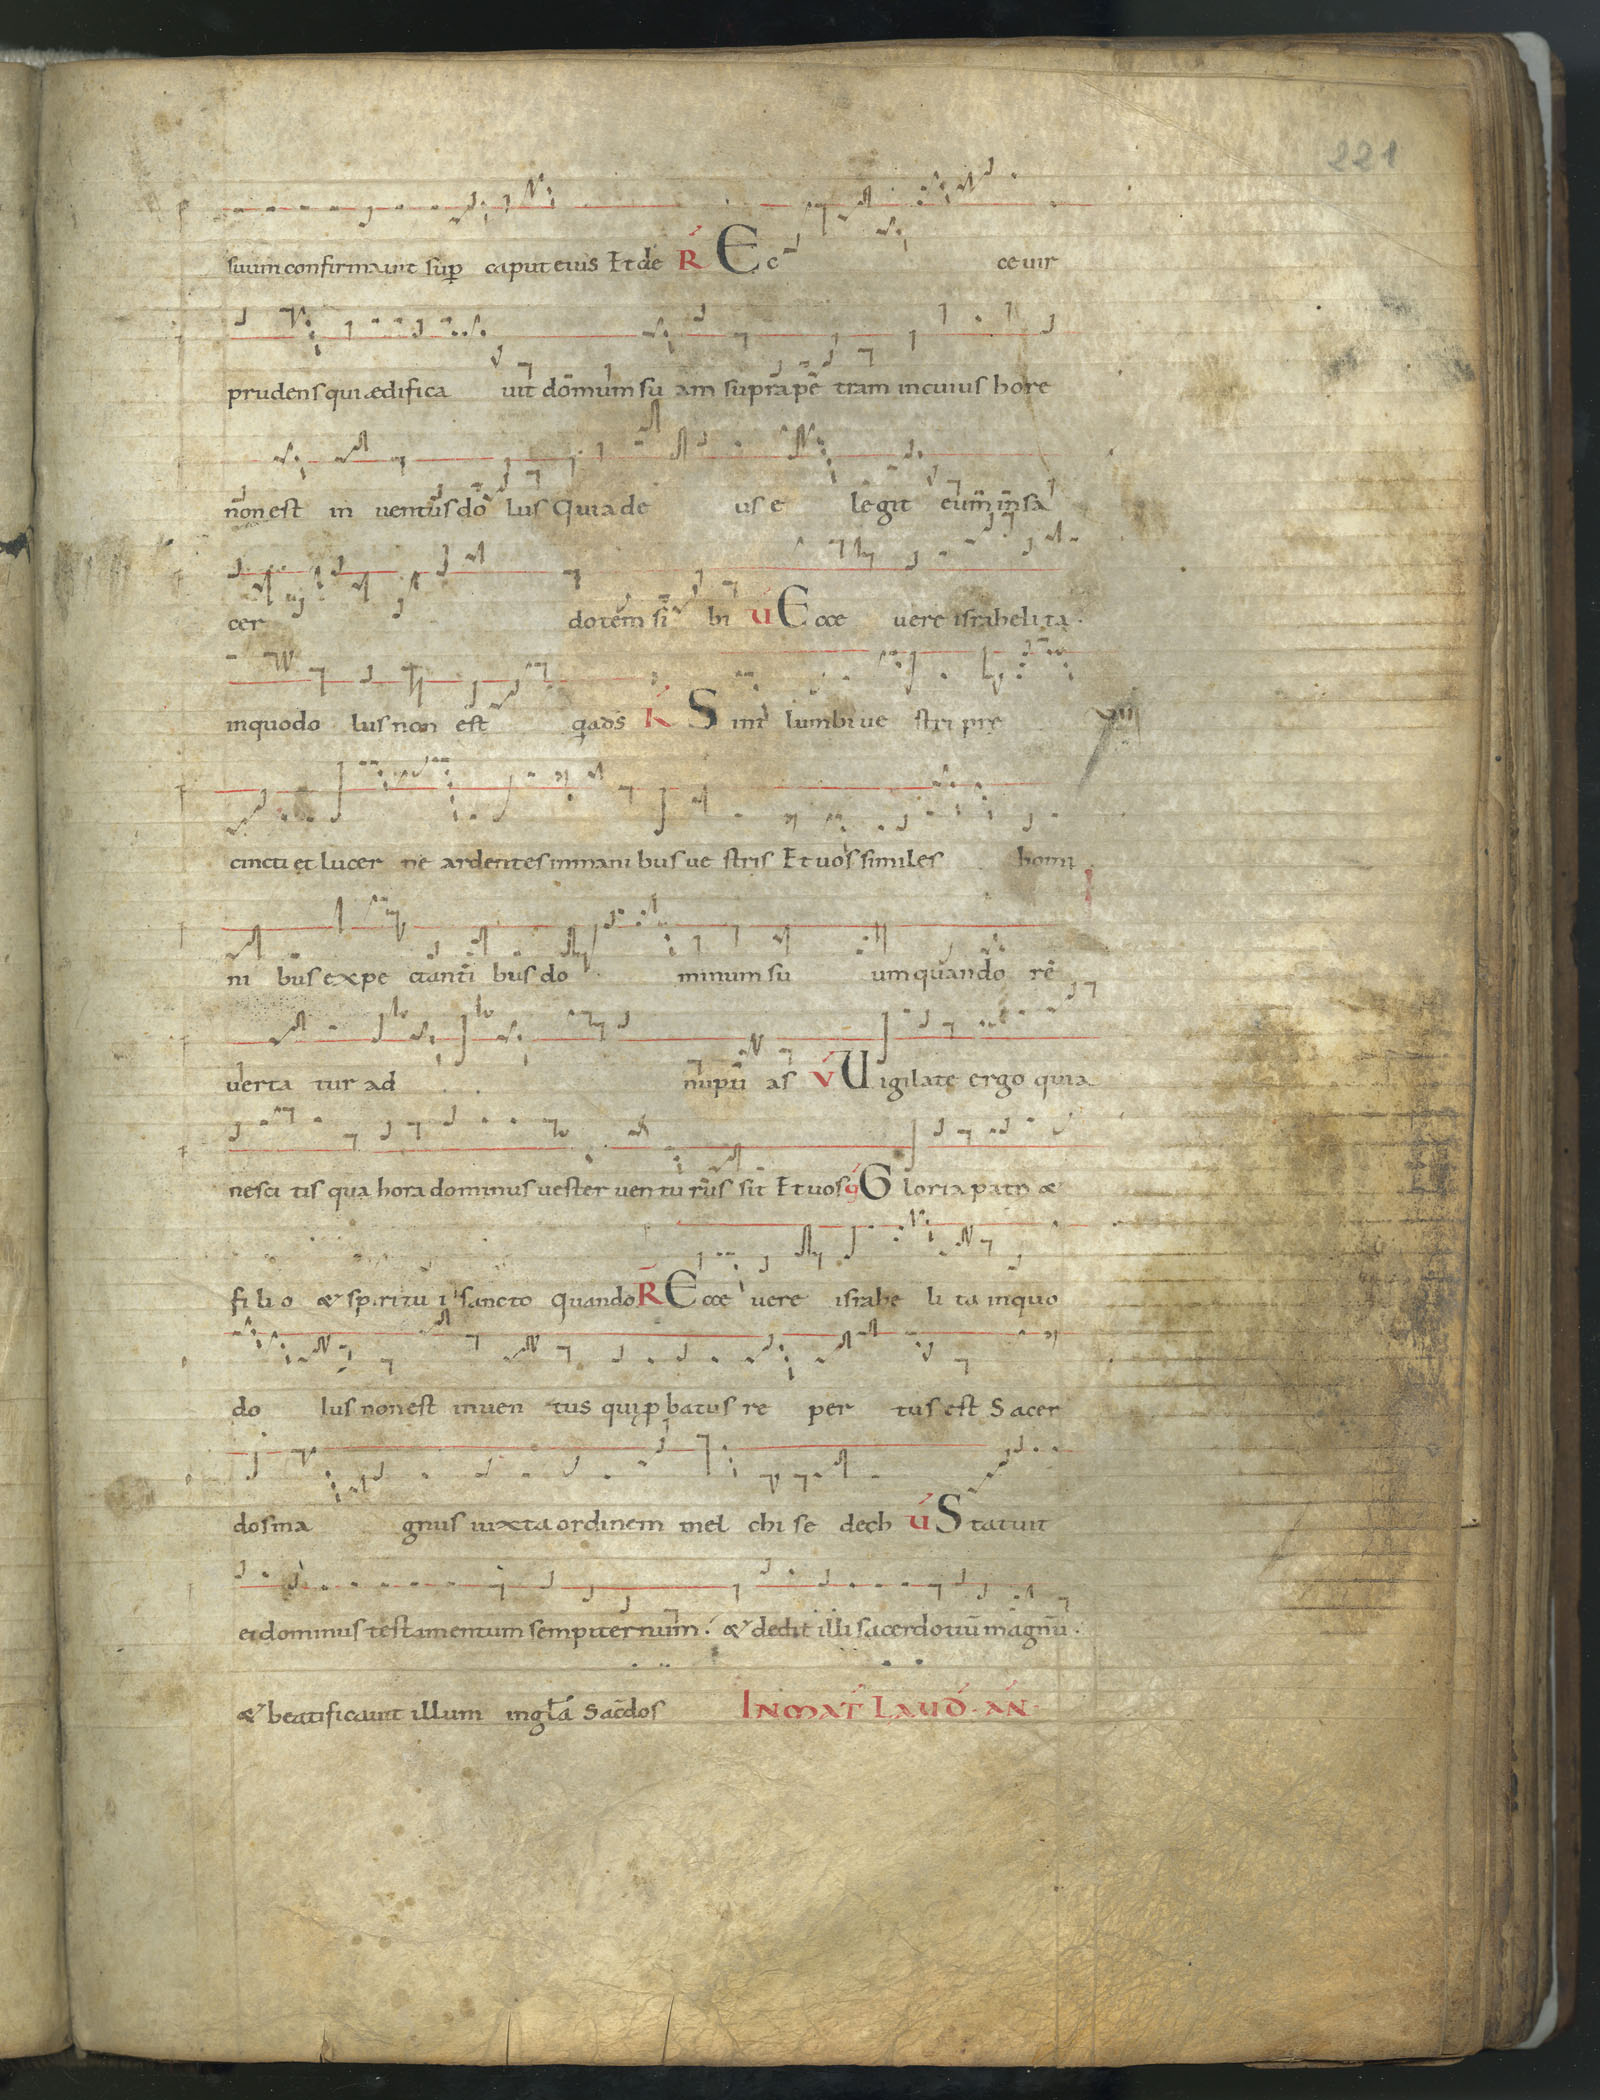 221
suum confirmavit sup caput eius Et de R Ec ce vir
prudens qui ædifica uit domum su am supra pe tram in cuius hore
non est in ventus do lus Quia de us e legit eum in sa
cer dotem si bi V Ecce vere israheli ta.
in quo do lus non est q ads R S int lumbi ve stri pre
cincti et lucer ne ardentes in mani bus ve stris Et vos similes homi
ni bus expe ctanti bus do minum su um quando re
verta tur ad nupti as V Uigilate ergo quia
nesci tis qua hora dominus vester ventu rus sit Et vos G loria patri &
fi li o & spiritu i sancto Quando R Ecce vere israhe li ta in quo
do lus non est inven tus qui p batus re per tus est Sacer
dos ma gnus iuxta ordinem mel chi se dech V Statuit
ei dominus testamentum sempiternum. & dedit illi sacerdotiū magnū.
& beatificavit illum in gła Sacdos IN MAT LAUD. AN.